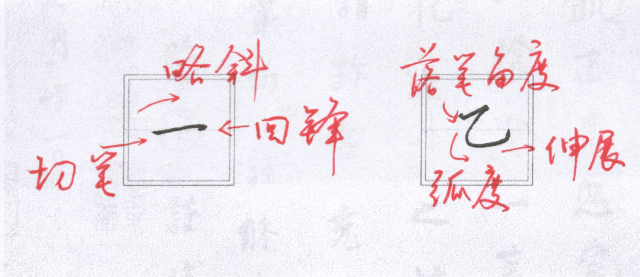 略斜
一
回锋
切笔
落笔角度
乙
伸展
弧度